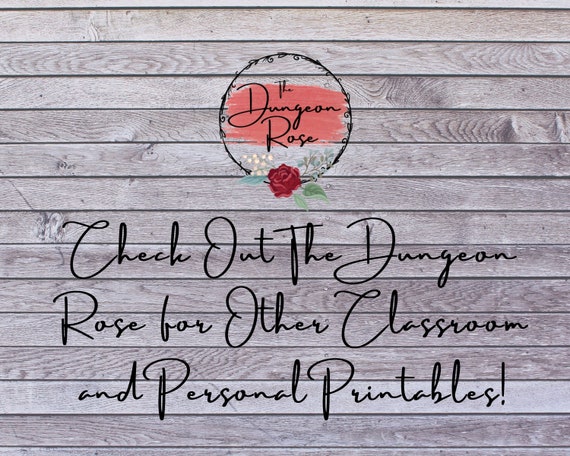 The
Dungeon
Rose
Check Out The Dungeon
Rose for Other Classroom
and Personal Printables!